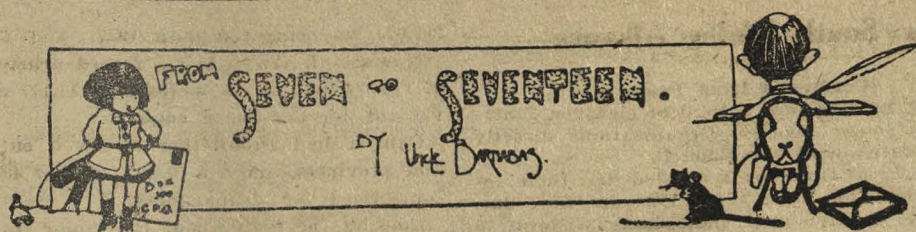 FROM SEVEN TO SEVENTEEN.
BY Uncle BARNABAS.
Box
G.P.O.